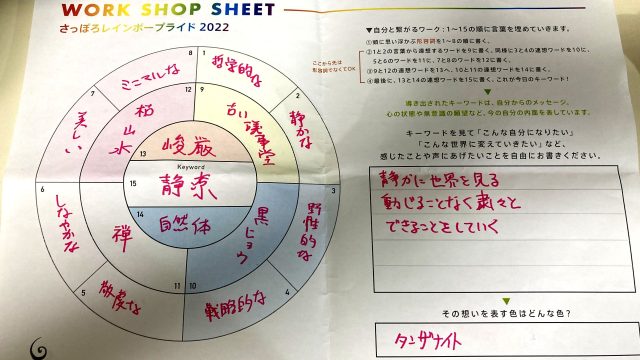 WORK SHOP SHEET
さっぽろレインボープライド 2022
8
1
ミニマルな
哲学的な
7
12
9
2
美しい
枯山水
古い議事堂
静かな
13
峻厳
Keyword
15
静寂
14
自然体
6
3
しなやかな
禅
黒ヒョウ
野性的な
5
11
10
4
敬虔な
戦略的な
▼自分と繋がるワーク：1〜15の順に言葉を埋めていきます。
①頭に思い浮かぶ形容詞を1〜8の順に書く。
②1と2の言葉から連想するワードを9に書く。同様に3と4の連想ワードを10に、
5と6のワードを11に、7と8のワードを12に書く。
③9と12の連想ワードを13へ、10と11の連想ワードを14に書く。
④最後に、13と14の連想ワードを15に書く、これが今日のキーワード！
ここから先は
形容詞でなくてOK
▼
導き出されたキーワードは、自分からのメッセージ。
心の状態や無意識の願望など、今の自分の内面を表しています。
キーワードを見て「こんな自分になりたい」
「こんな世界に変えていきたい」など、
感じたことや声にあげたいことを自由にお書きください。
静かに世界を見る
動じることなく粛々と
できることをしていく
▼
その想いを表す色はどんな色？
タンザナイト